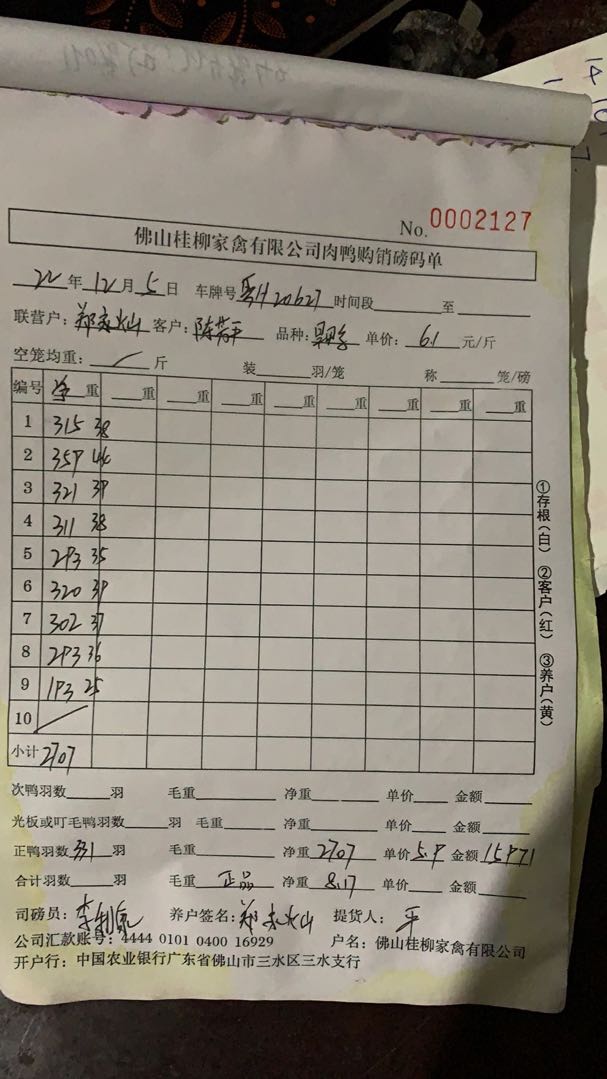 14
1
No. 0002127
佛山桂柳家禽有限公司肉鸭购销磅码单
22年12月5日 车牌号 粤H20627 时间段 至
联营户：郑火灿 客户：陈芳平 品种： 单价：6.1元/斤
空笼均重： / 斤 装 羽/笼 称 笼/磅
编号 净重 重 重 重 重 重 重 重
1 315 38
2 359 44
3 321 39
4 311 38
5 293 35
6 320 39
7 302 37
8 293 36
9 193 25
10 /
小计 2707
①存根(白) ②客户(红) ③养户(黄)
次鸭羽数 羽 毛重 净重 单价 金额
光板或叮毛鸭羽数 羽 毛重 净重 单价 金额
正鸭羽数 331 羽 毛重 净重 2707 单价 5.9 金额 15971
合计羽数 羽 毛重 正品 净重 8.17 单价 金额
司磅员：李 养户签名：郑火灿 提货人：平
公司汇款账号：4444 0101 0400 16929 户名：佛山桂柳家禽有限公司
开户行：中国农业银行广东省佛山市三水区三水支行